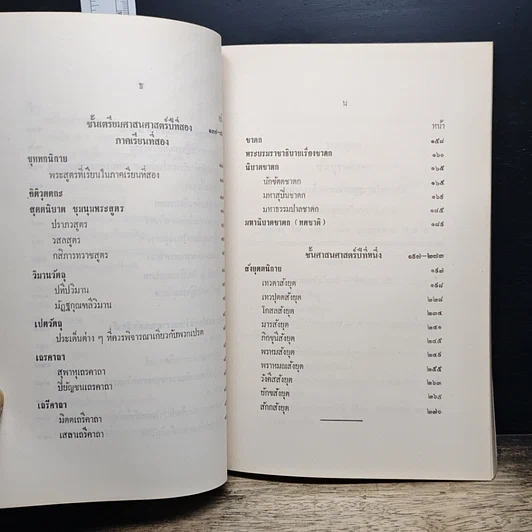 ช
ชั้นเตรียมศาสนศาสตร์ปีที่สอง
ภาคเรียนที่สอง
ขุททกนิกาย
พระสูตรที่เรียนในภาคเรียนที่สอง
อิติวุตตกะ
สุตตนิบาต ชุมนุมพระสูตร
ปราภวสูตร
วสลสูตร
กสิภารทวาชสูตร
วิมานวัตถุ
ปทีปวิมาน
มัฏฐกุณฑลีวิมาน
เปตวัตถุ
ประเด็นต่าง ๆ ที่ควรพิจารณาเกี่ยวกับพวกเปรต
เถรคาถา
สุพาหุเถรคาถา
ปิยัญชนเถรคาถา
เถรีคาถา
มิตตเถรีคาถา
เสลาเถรีคาถา
น
หน้า
ชาดก ๑๕๘
พระบรมราชาธิบายเรื่องชาดก ๑๖๐
นิบาตชาดก ๑๖๕
นักขัตตชาดก ๑๖๕
มหาสุบินชาดก ๑๖๕
มหาธรรมปาลชาดก ๑๘๕
มหานิบาตชาดก (ทศชาติ) ๑๘๕
ชั้นศาสนศาสตร์ปีที่หนึ่ง ๑๙๗–๒๗๓
สังยุตตนิกาย ๑๙๗
เทวตาสังยุต ๑๙๘
เทวปุตตสังยุต ๒๒๘
โกสลสังยุต ๒๓๕
มารสังยุต ๒๔๑
ภิกขุนีสังยุต ๒๔๕
พรหมสังยุต ๒๕๑
พราหมณสังยุต ๒๕๕
วังคีสสังยุต ๒๖๓
ยักขสังยุต ๒๖๕
สักกสังยุต ๒๗๐